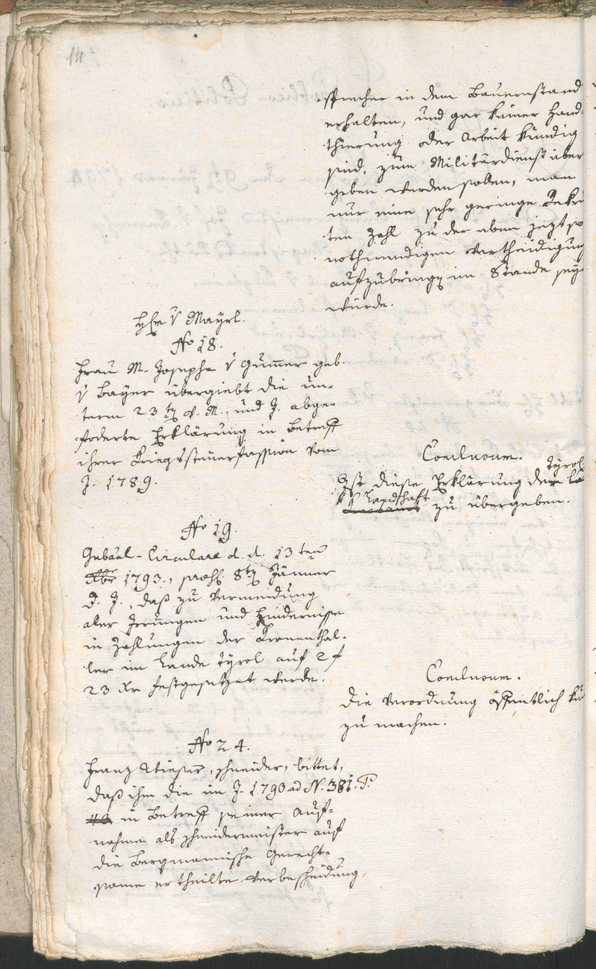 14
sprecher in dem Bauernstand
erhalten, und gar keiner Hand-
thierung oder Arbeit kündig
sind, zum Militärdienst über
geben werden sollen, man
nur eine sehr geringe Rekru
ten Zahl zu der eben jezt so
nothwendigen Vertheidigung
aufzubringen im Stande seyn
würde.
H v Mayrl.
No 18.
Frau M. Josepha v Gumer geb.
v Bayer übergiebt die un-
term 23ten v. M., und J. abge-
foderte Erklärung in Betreff
ihrer Kriegssteuerfassion vom
J. 1789.
Conclusum.
Ist diese Erklärung der
Tyrol
Landschaft zu übergeben.
No 19.
Gubial-Circulare d. d. 13ten
Xber 1793., praes. 8ten Jänner
d. J., daß zu Vermeidung
aller Irrungen und Hindernisse
in Zahlungen der Kronenthal-
ler im Lande Tyrol auf 2 f
23 Xr festgesetzet werde.
Conclusum.
Die Verordnung öffentlich
zu machen.
No 24.
Franz Stieger, Schneider, bittet,
daß ihm die im J. 1790 ad N. 381. P.
in Betreff seiner Auf-
nahme als Schneidermeister auf
die Bergmannische Gerecht-
same ertheilte Verbescheidung,